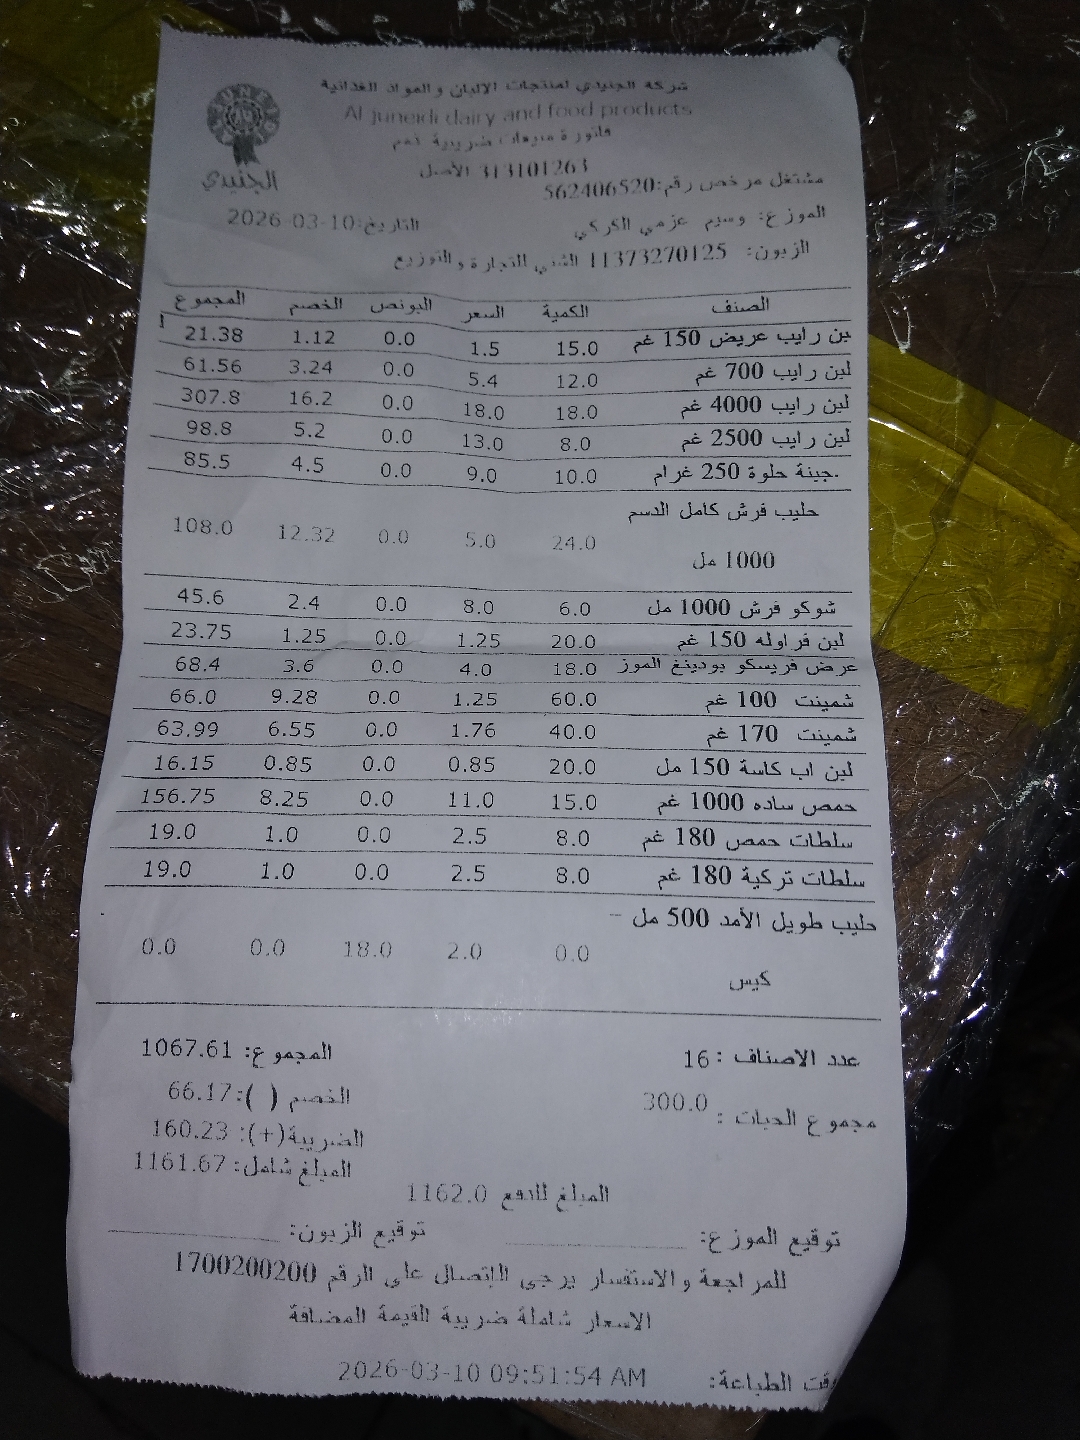 شركه الجنيدي لمنتجات الالبان والمواد الغذائية
Al juneidi dairy and food products
الجنيدي
فاتورة مبيعات ضريبية
313101263 الأصل
مشتغل مرخص رقم:562406520
الموزع: وسيم عزمي الكركي التاريخ:2026-03-10
الزبون: 11373270125 الشني للتجارة والتوزيع
الصنف الكمية السعر البونص الخصم المجموع
بن رايب عريض 150 غم 15.0 1.5 0.0 1.12 21.38
لبن رايب 700 غم 12.0 5.4 0.0 3.24 61.56
لبن رايب 4000 غم 18.0 18.0 0.0 16.2 307.8
لبن رايب 2500 غم 8.0 13.0 0.0 5.2 98.8
جبنة حلوة 250 غرام. 10.0 9.0 0.0 4.5 85.5
حليب فرش كامل الدسم
1000 مل 24.0 5.0 0.0 12.32 108.0
شوكو فرش 1000 مل 6.0 8.0 0.0 2.4 45.6
لبن فراوله 150 غم 20.0 1.25 0.0 1.25 23.75
عرض فريسكو بودينغ الموز 18.0 4.0 0.0 3.6 68.4
شمينت 100 غم 60.0 1.25 0.0 9.28 66.0
شمينت 170 غم 40.0 1.76 0.0 6.55 63.99
لبن اب كاسة 150 مل 20.0 0.85 0.0 0.85 16.15
حمص ساده 1000 غم 15.0 11.0 0.0 8.25 156.75
سلطات حمص 180 غم 8.0 2.5 0.0 1.0 19.0
سلطات تركية 180 غم 8.0 2.5 0.0 1.0 19.0
حليب طويل الأمد 500 مل -
كيس 0.0 2.0 18.0 0.0 0.0
عدد الاصناف : 16 المجموع: 1067.61
مجموع الحبات : 300.0 الخصم ( ): 66.17
الضريبة(+): 160.23
المبلغ شامل: 1161.67
المبلغ للدفع 1162.0
توقيع الموزع: توقيع الزبون:
للمراجعة والاستفسار يرجى الاتصال على الرقم 1700200200
الاسعار شاملة ضريبة القيمة المضافة
وقت الطباعة: 2026-03-10 09:51:54 AM